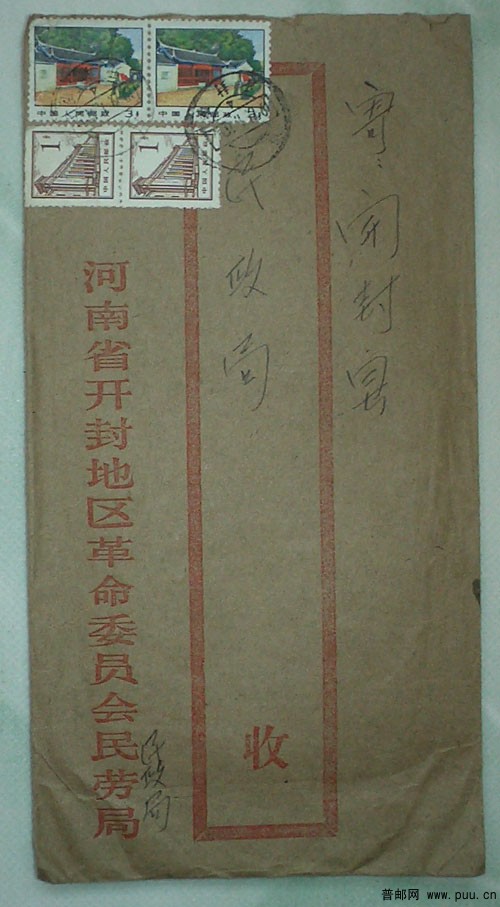 寄：開封县
民政局
收
河南省开封地区革命委员会民劳局
民政局
中国人民邮政
中国人民邮政
1
中国人民邮政
1
中国人民邮政
普邮网 www.puu.cn